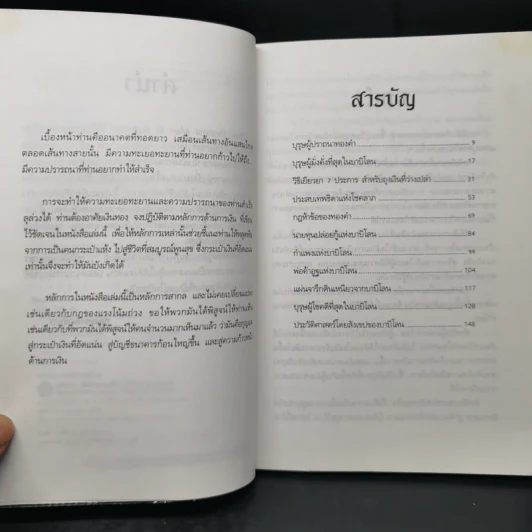 เบื้องหน้าท่านคืออนาคตที่ทอดยาว เสมือนเส้นทางอันแสนไกล
ตลอดเส้นทางสายนั้น มีความทะเยอทะยานที่ท่านอยากก้าวไปให้ถึง
มีความปรารถนาที่ท่านอยากทำให้สำเร็จ
การจะทำให้ความทะเยอทะยานและความปรารถนาของท่านสำเร็จ
ลุล่วงได้ ท่านต้องอาศัยเงินทอง จงปฏิบัติตามหลักการด้านการเงิน ที่เขียน
ไว้ชัดเจนในหนังสือเล่มนี้ เพื่อให้หลักการเหล่านั้นช่วยชี้แนะท่านให้หลุดพ้น
จากการเป็นคนกระเป๋าแห้ง ไปสู่ชีวิตที่สมบูรณ์พูนสุข ซึ่งกระเป๋าเงินที่อัดแน่น
เท่านั้นจึงจะทำให้มันบังเกิดได้
หลักการในหนังสือเล่มนี้เป็นหลักการสากล และไม่เคยเปลี่ยนแปลง
เช่นเดียวกับกฎของแรงโน้มถ่วง ขอให้พวกมันได้พิสูจน์ให้ท่านเห็น
เช่นเดียวกับที่พวกมันได้พิสูจน์ให้คนจำนวนมากเห็นมาแล้ว ว่ามันคือกุญแจ
สู่กระเป๋าเงินที่อัดแน่น สู่บัญชีธนาคารก้อนใหญ่ขึ้น และสู่ความก้าวหน้า
ด้านการเงิน
สารบัญ
บุรุษผู้ปรารถนาทองคำ 9
บุรุษผู้มั่งคั่งที่สุดในบาบิโลน 17
วิธีเยียวยา 7 ประการ สำหรับถุงเงินที่ว่างเปล่า 31
ประสบเทพธิดาแห่งโชคลาภ 53
กฎห้าข้อของทองคำ 69
นายทุนปล่อยกู้แห่งบาบิโลน 84
กำแพงแห่งบาบิโลน 99
พ่อค้าอูฐแห่งบาบิโลน 104
แผ่นจารึกดินเหนียวจากบาบิโลน 117
บุรุษผู้โชคดีที่สุดในบาบิโลน 128
ประวัติศาสตร์โดยสังเขปของบาบิโลน 148